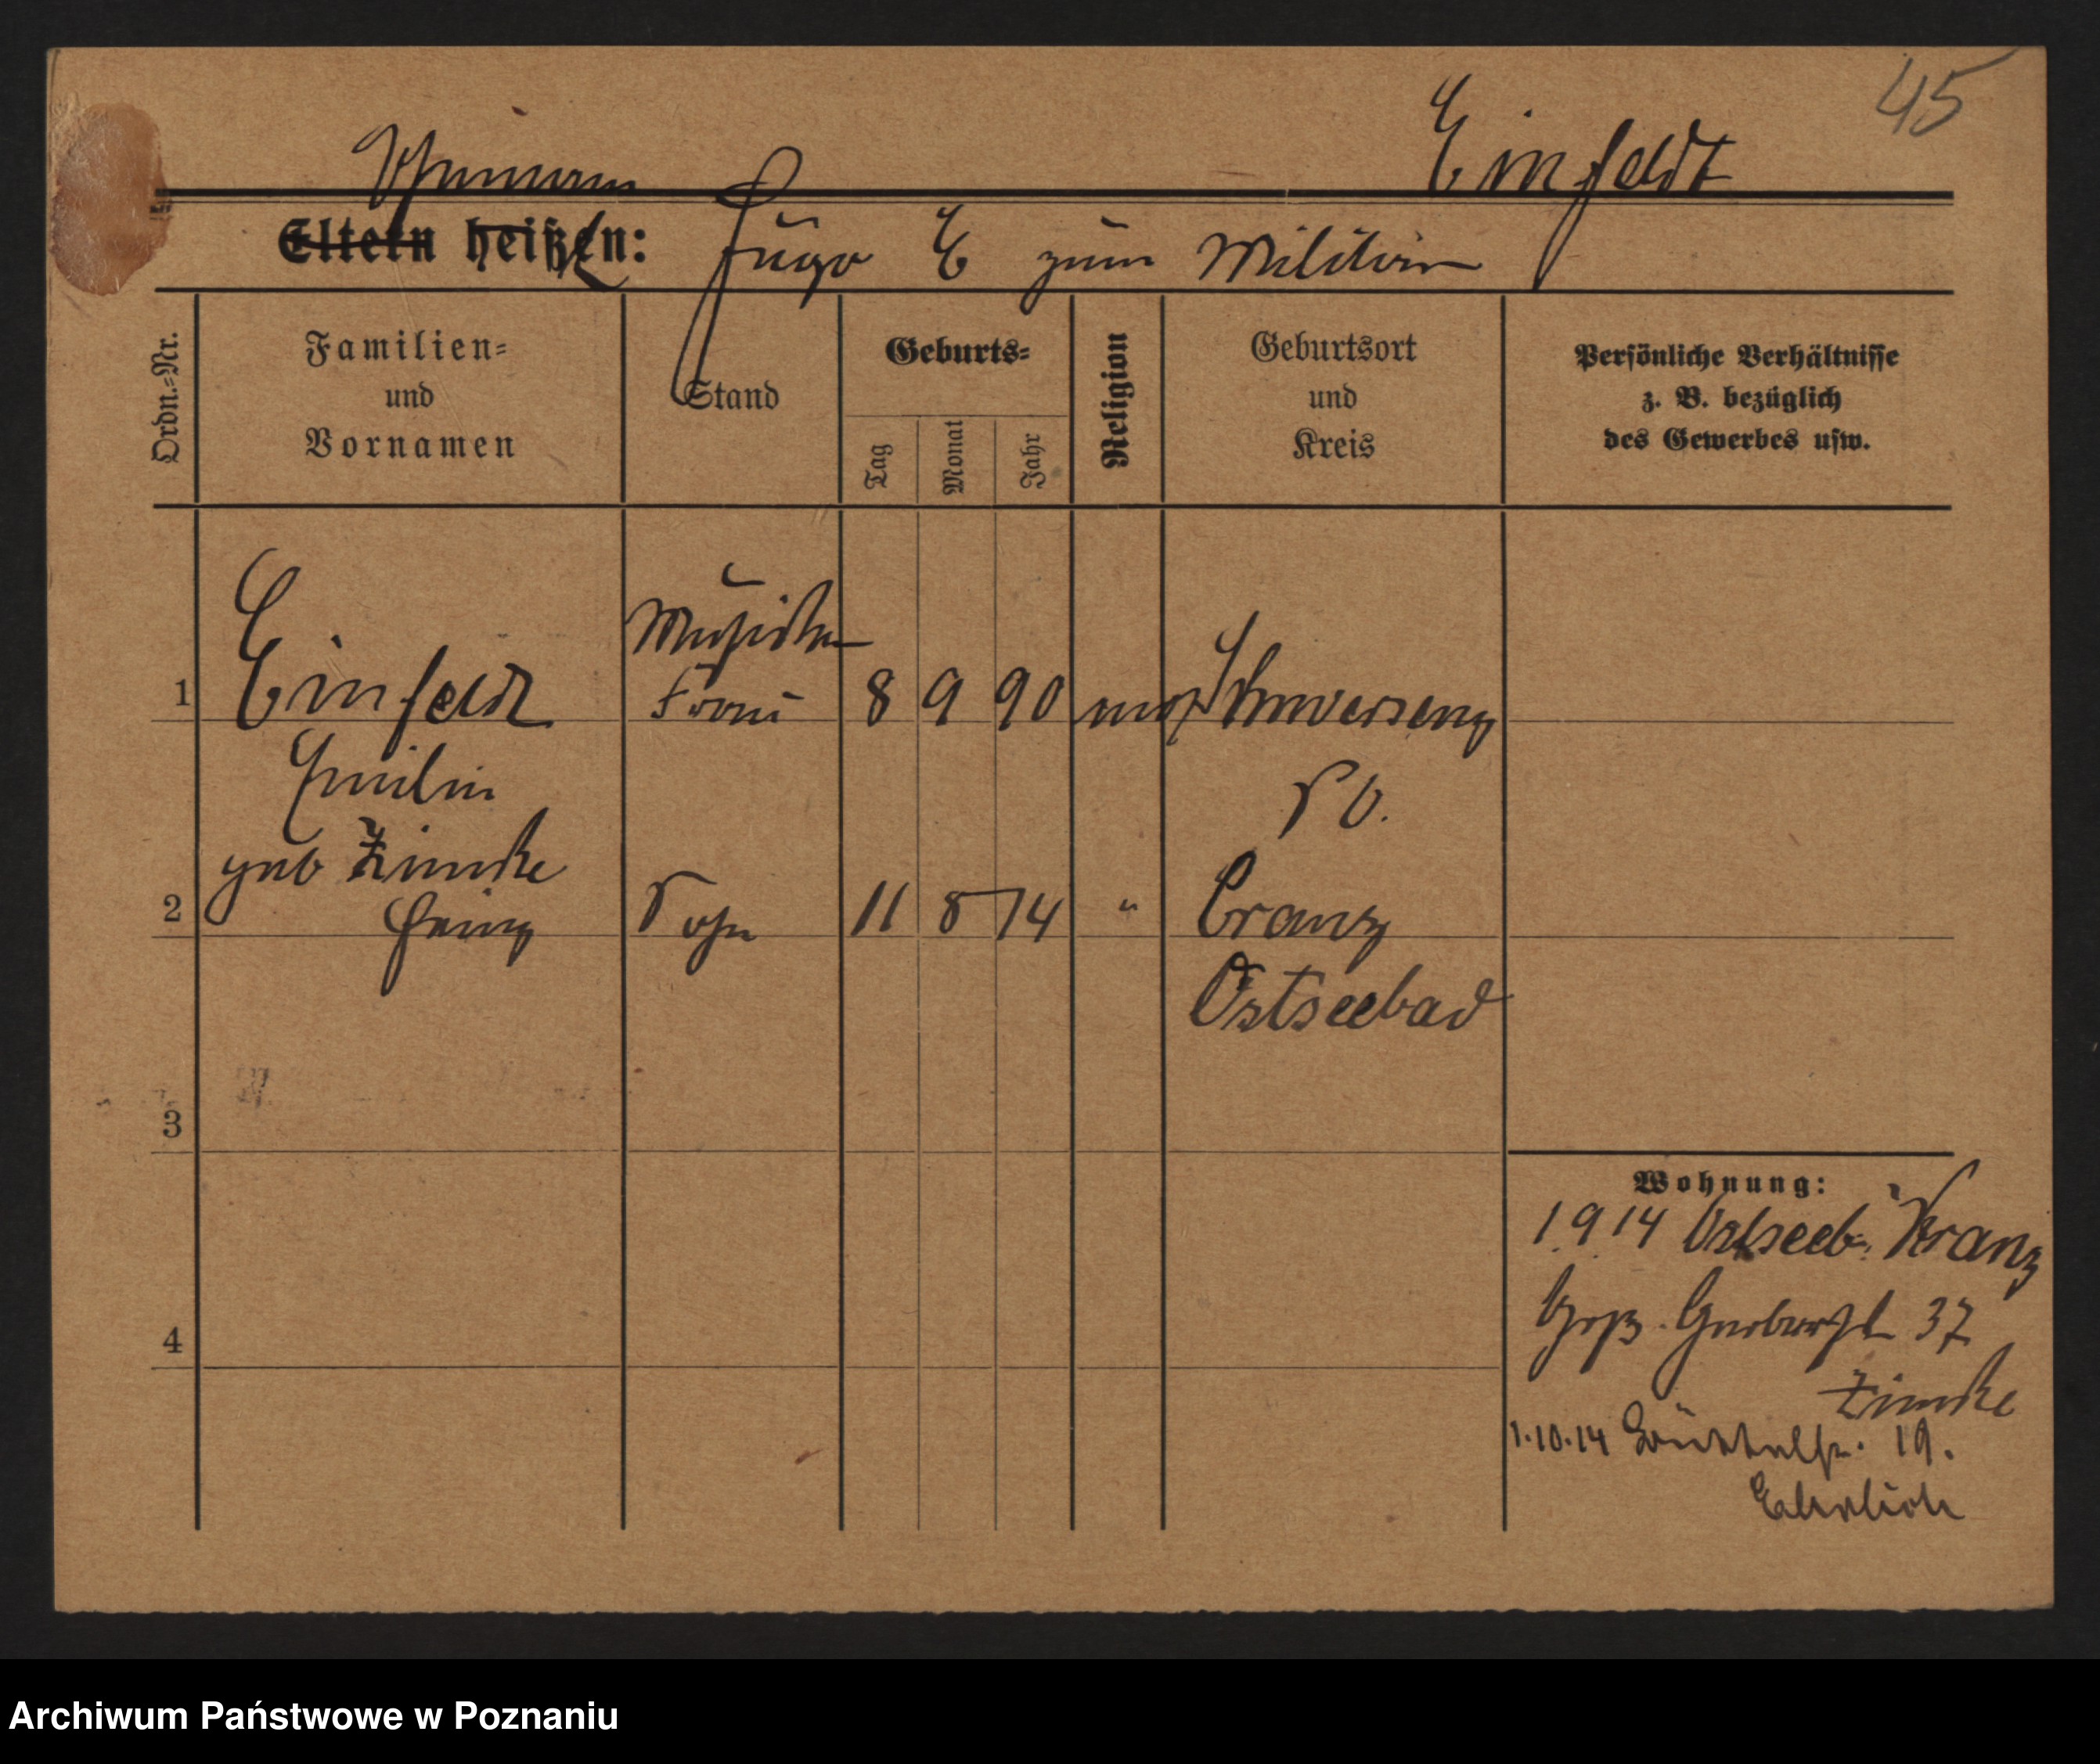 45
Ehemann Einfeldt
Eltern heißen: Hugo E zum Militär
Ordn.-Nr.
Familien-
und
Vornamen
Stand
Geburts-
Tag
Monat
Jahr
Religion
Geburtsort
und
Kreis
Persönliche Verhältnisse
z. B. bezüglich
des Gewerbes usw.
Musiker
1 Einfeldt Frau 8 9 90 mos Schwersenz
Emilie P O.
geb Zimke
2 Heinz Sohn 11 8 14 " Cranz
Ostseebad
3
4
Wohnung:
1.9.14 Ostseeb. Kranz
Groß. Gerberstr 37
Zimke
1.10.14 19.
Ehrlich
Archiwum Państwowe w Poznaniu